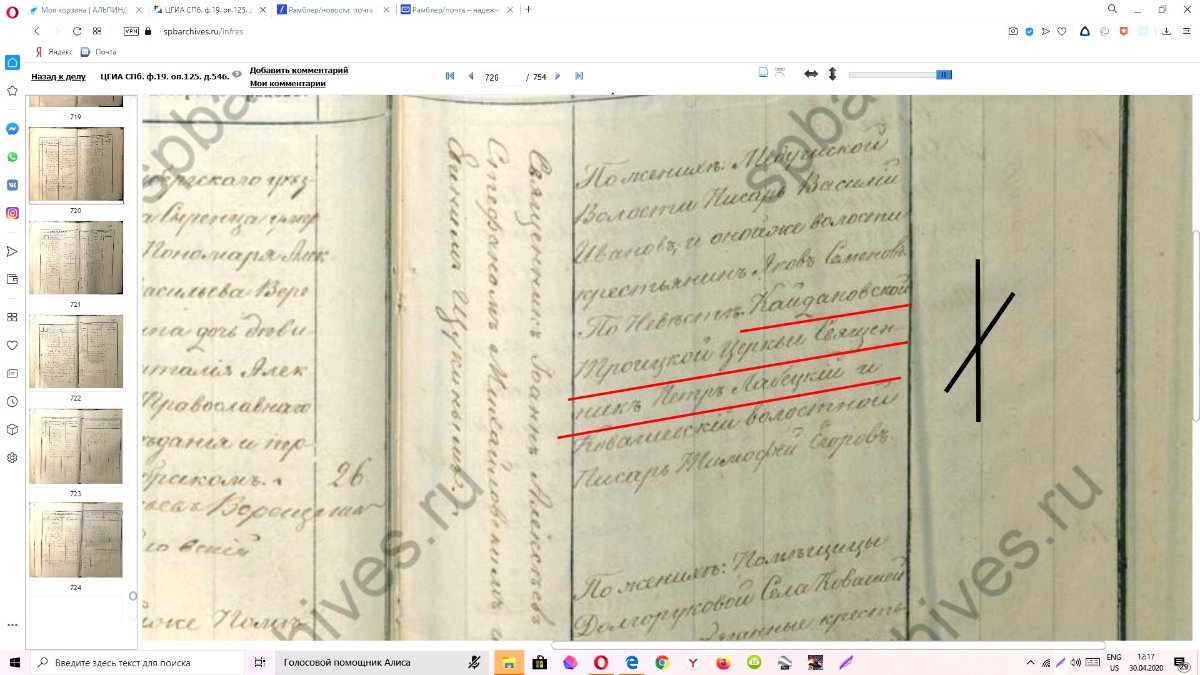 Моя корзина | АЛЬПИНД
ЦГИА СПб. ф.19. оп.125. д.
Рамблер/новости, почта
Рамблер/почта – надежн
VPN
spbarchives.ru/infres
Яндекс
Почта
Назад к делу
ЦГИА СПб. ф.19. оп.125. д.546.
Добавить комментарий
Мои комментарии
720 / 754
719
720
721
722
723
724
Пономаря Алек
асильева Вере
на дочь деви
аталія Алек
Православнаго
браком.
26
Священник Іоанн Алексеев
Стефаном Михайловским и
По женихе: Медушской
Волости Писарь Василій
Иванов, и оной же волости
крестьянин Яков Семенов.
По Невесте: Кайдановской
Троицкой Церкви Священ-
ник Петр Лабецкій и
Ковашевскій волостной
Писарь Тимофей Егоров.
По женихе: Помещицы
Долгоруковой Села Ковашей
spbarchives.ru
Введите здесь текст для поиска
Голосовой помощник Алиса
ENG
US
12:17
30.04.2020